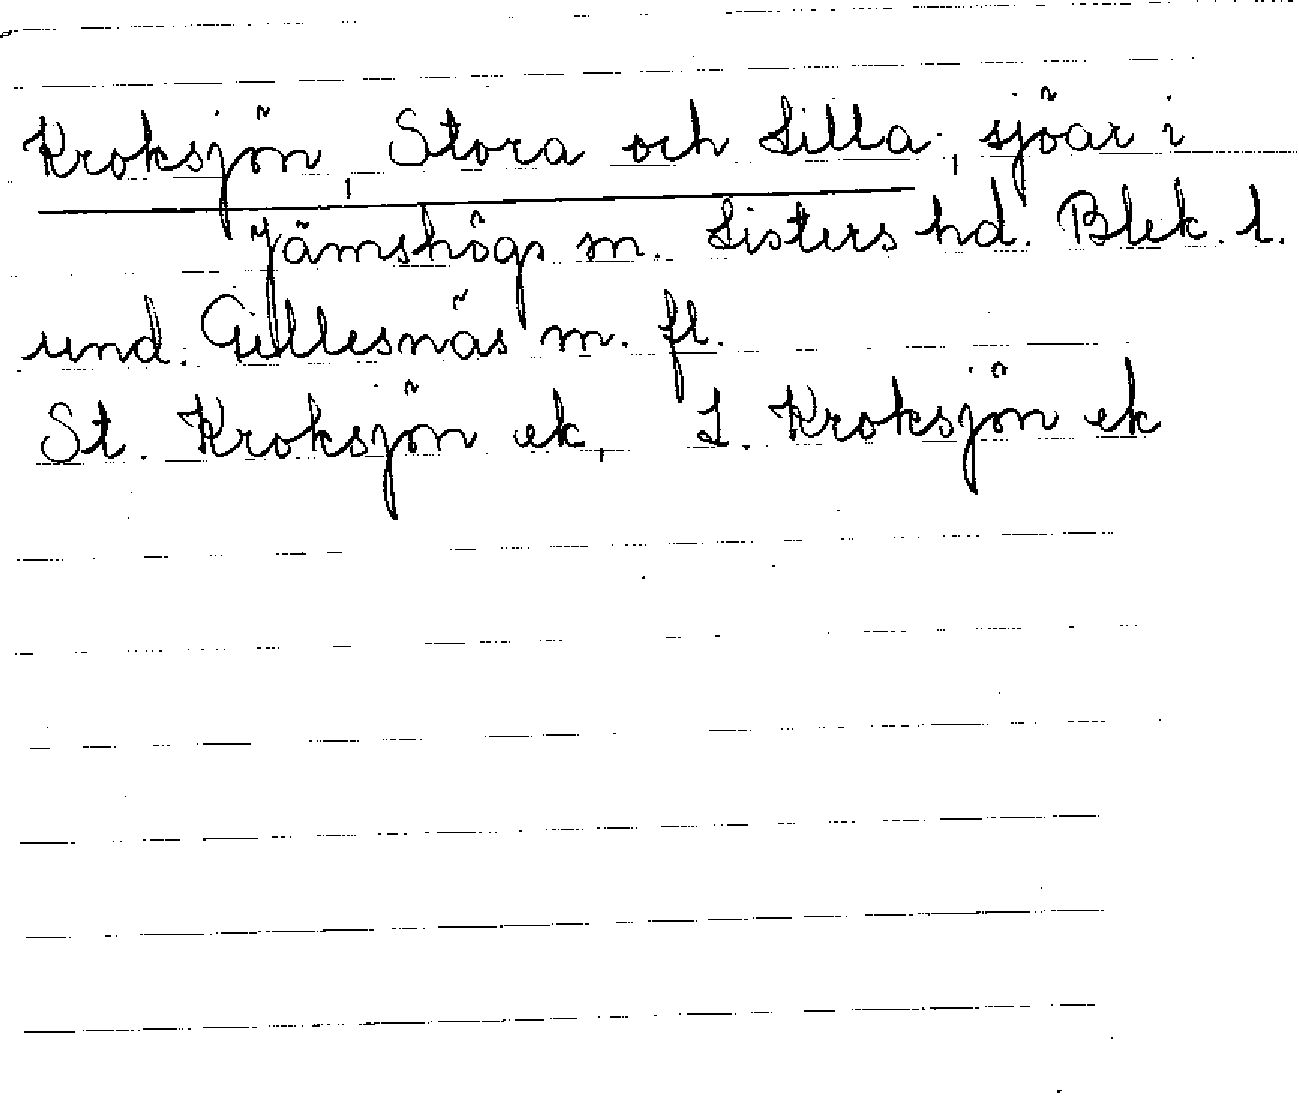 Kroksjön, Stora och Lilla, sjöar i
Jämshögs sn. Listers hd. Blek. l.
und. Gillesnäs m. fl.
St. Kroksjön ek, L. Kroksjön ek